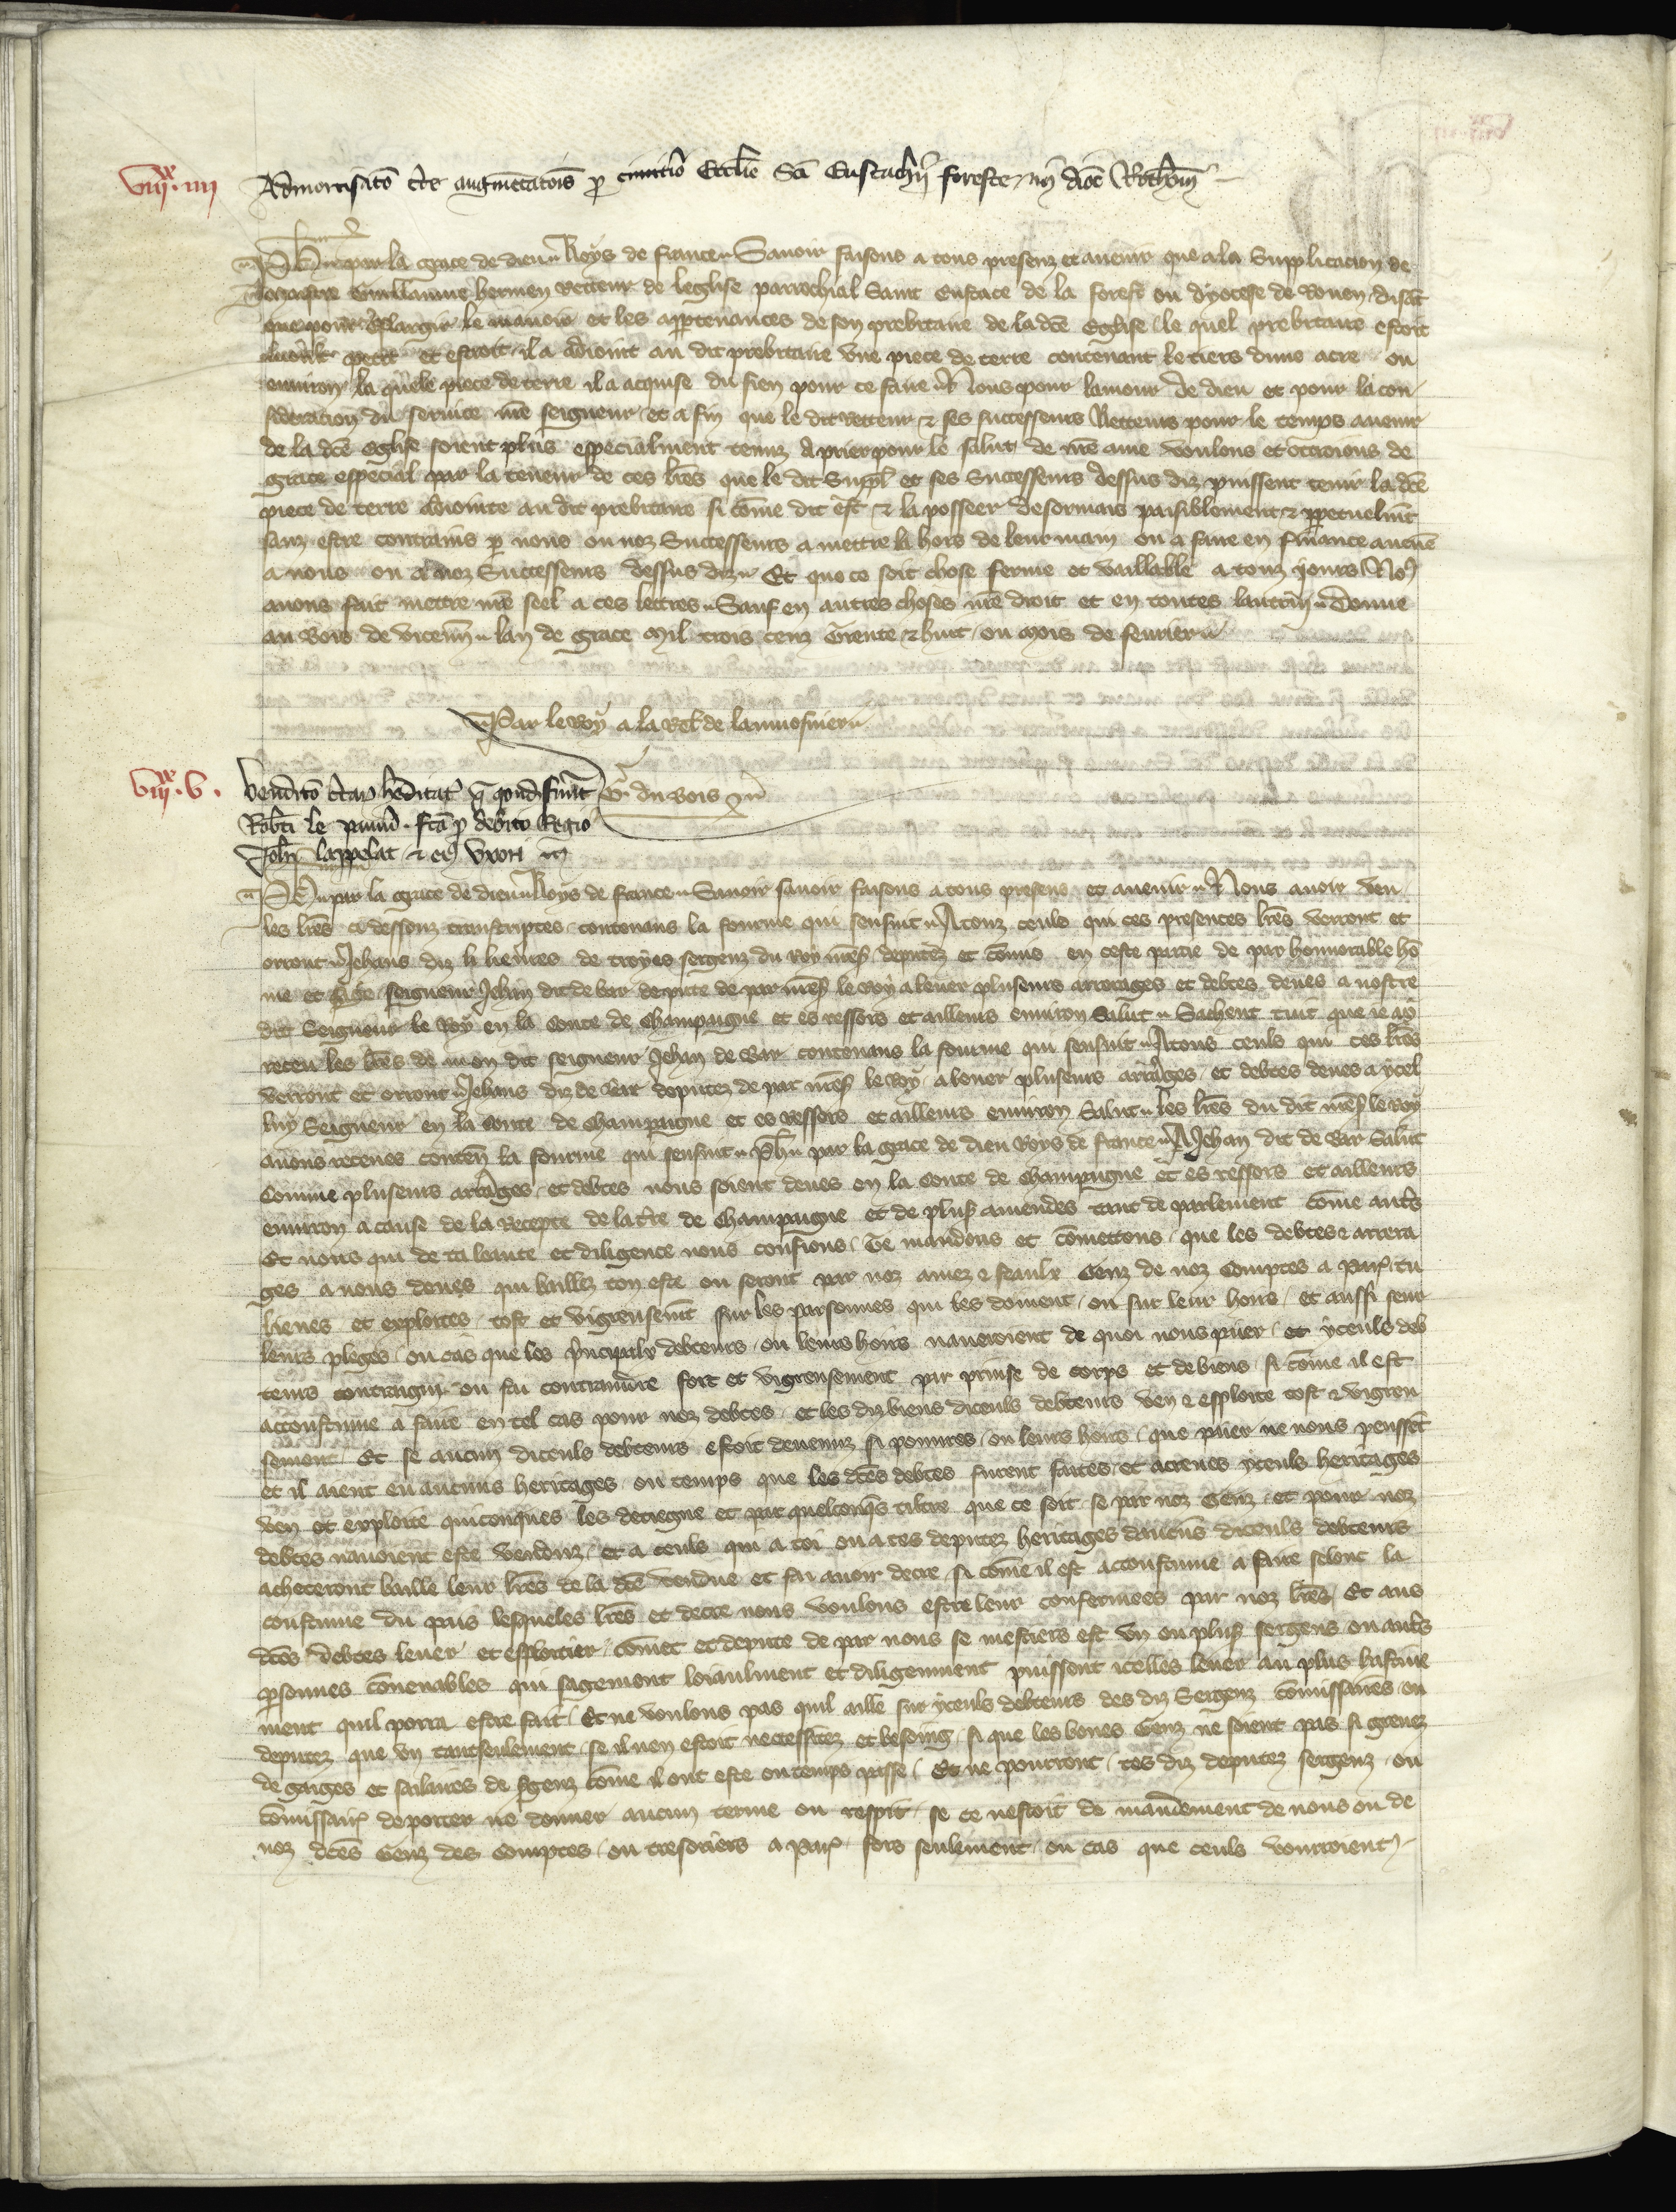 VIII^xx. IIII
Admortisatō cͭe augmētatoīs ꝑ cimitͥo Ecclīe Scī Eustachij foreste in dioc Rothom̄
Ph̄ par la grace de dieu Roys de france Sauoir faisons a tous presenz et auenir que a la Supplicacion de
maistre Guillaume hermen Recteur de leglise parrochial Saint Eustace de la forest ou dyocese de Rouen disāt
que pour eslargir le manoir et les appartenances de son prebitaire de la dc̄e Eglise le quel prebitaire estoit
petit et estroit il a adioint au dit prebitaire vne piece de terre contenant le tiers dune acre ou
enuiron la quele piece de terre il a acquise du sien pour ce faire Nous pour lamour de dieu et pour la con
sideration du seruice nr̄e seigneur et a fin que le dit Recteur & ses successeurs Recteurs pour le temps auenir
de la dc̄e Eglise soient plus especialment tenuz a prier pour le salut de nr̄e ame voulons et ottroions de
grace especial par la teneur de ces lr̄es que le dit Suppl̄ et ses Successeurs dessus diz puissent tenir la dc̄e
piece de terre adiointe au dit prebitaire si cōme dit est & la posseer desormais paisiblement & ꝑpetuelmt̄
sanz estre contrains ꝑ nous ou noz Successeurs a mettre la hors de leur main ou a faire en finance aucūe
a nous ou a noz Successeurs dessus diz Et que ce soit chose ferme et vaillable a touz iours No9
auons fait mettre nr̄e seel a ces lettres Sauf en autres choses nr̄e droit et en toutes lautrui Donne
au Bois de vicenn̄ lan de grace Mil trois cenz Trente & huit ou mois de feurier
Par le Roy a la Rel̄ de laumosnier
VIII^xx. V.
Vendicō cͭar h̄editat q̄ qondā fuer̄t
G. du bois
Rob̄ti le fc̄a ꝑ debito Regio
Joh̄i lappelat & ei9 vxori
Ph̄ par la grace de dieu Roys de france Sauoir sauoir faisons a tous presens et auenir Nous auoir veu
les lr̄es ci dessouz transcriptes contenans la fourme qui sensuit A touz ceuls qui ces presentes lr̄es verront et
orront Jehans diz li lieures de troyes sergenz du Roy nr̄es̄ deputez et cōmis en ceste partie de par honnorable hō
me et sage seigneur Jehan dit de bar depute de par nr̄es̄ le Roy a leuer pluseurs arrerages et debtes deues a nostre
dit Seigneur le Roy en la conte de Champaigne et es ressors et aillieurs enuiron Salut Sachent tuit que ie ay
receu les lr̄es de mon dit seigneur Jehan de Bar contenans la fourme qui sensuit A tous ceuls qui ces lr̄es
verront et orront Jehans diz de Bar deputez de par nr̄es̄ le Roy a leuer pluseurs arr̄ages et debtes deues a ycel
luy Seigneur en la conte de Champaigne et es ressors et aillieurs enuiron Salut les lr̄es du dit nr̄es̄ le Roy
auons receues conten̄ la fourme qui sensuit Ph̄ par la grace de dieu Roys de france A Jehan dit de Bar Salut
Comme pluseurs arr̄ages et debtes nous soient deues en la conte de Champaigne et es ressors et aillieurs
enuiron a cause de la Recepte de la tr̄re de Champaigne et de plus̄ amendes tant de parlement cōme autˢ
Et nous qui de ta leaute et diligence nous confions Te mandons et cōmettons que les debtes & arrera
ges a nous deues qui baillez ton este ou seront par noz amez & feaulx Genz de noz Comptes a par̄ tu
lieues et exploites tost et vigreusemt̄ sur les parsonnes qui les doiuent ou sur leur hoirs et aussi seur
leurs pleges ou cas que les p̄ncipalx debteurs ou leurs hoirs naueroient de quoi nous paier et yceuls deb
teurs contraigni ou fai contraindre fort et vigreusement par prinse de corps et de biens si cōme il est
accoustume a faire en tel cas pour noz debtes et les diz biens diceuls debteurs ven & esploite tost & vigreu
sement Et se aucun diceuls debteurs estoit deuenuz si poures ou leurs hoirs que paier ne nous peussēt
et il aient eu aucuns heritages ou temps que les dc̄es debtes furent faites et acreues yceuls heritages
ven et exploite quiconques les detiegne et par quelconq̄s tiltre que ce soit se par noz Genz et pour noz
debtes nauoient este vendus et a ceuls qui a toi ou a tes deputez heritages daucūs diceuls debteurs
acheteront baille leur lr̄es de la dc̄e vendue et fai auoir decre si cōme il est accoustume a faire selonc la
coustume du pais lesqueles lr̄es et decre nous voulons estre leur confermees par noz lr̄es Et aus
dc̄es debtes leuer et esploitier cōmet et depute de par nous se mestiers est vn ou plus̄ sergens ou autˢ
ꝑsonnes cōuenables qui sagement loiaulment et diligemment puissent icelles leuer au plus hastiue
ment quil porra estre fait Et ne voulons pas quil aille sur yceuls debteurs des diz Sergenz cōmissaires ou
deputez que vn tantseulement se il nen estoit necessitez et besoing si que les bones Genz ne soient pas si greuez
de gaiges et salaires de s̄genz cōme il ont este ou temps passe Et ne pourront tes diz deputez sergenz ou
cōmissair̄ deporter ne donner aucun terme ou respit se ce nestoit de mandement de nous ou de
noz dc̄es Genz des Comptes ou tresoriers a par̄ fors seulement ou cas que ceuls vourroient